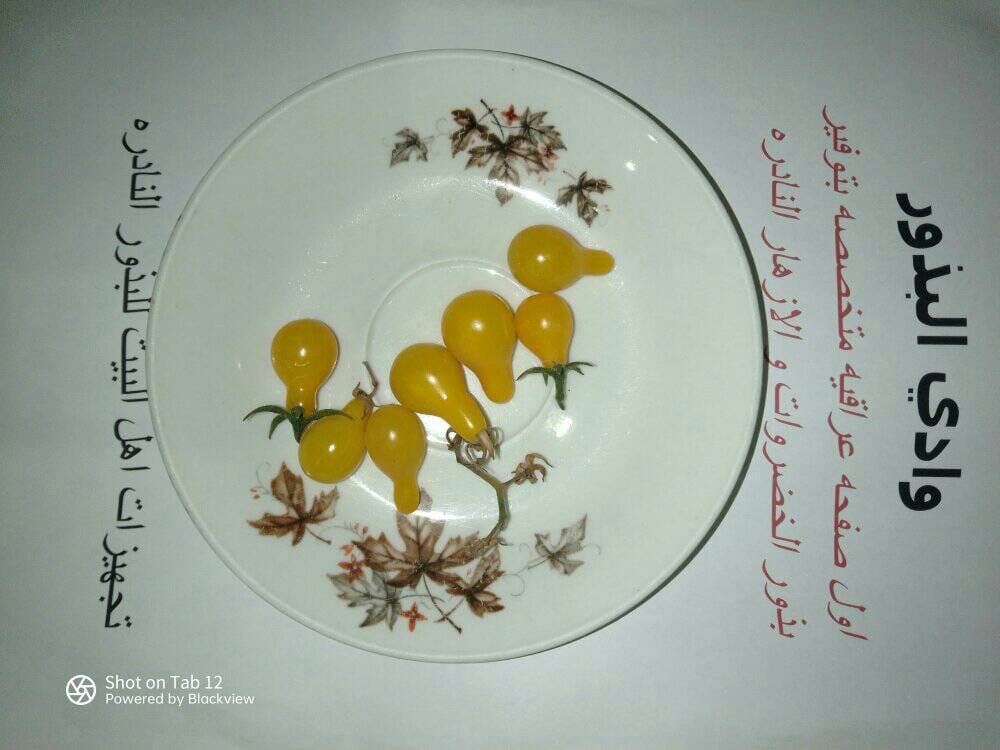 وادي البذور
اول صفحه عراقيه متخصصه بتوفير
بذور الخضروات و الازهار النادره
تجهيزات اهل البيت للبذور النادره
Shot on Tab 12
Powered by Blackview